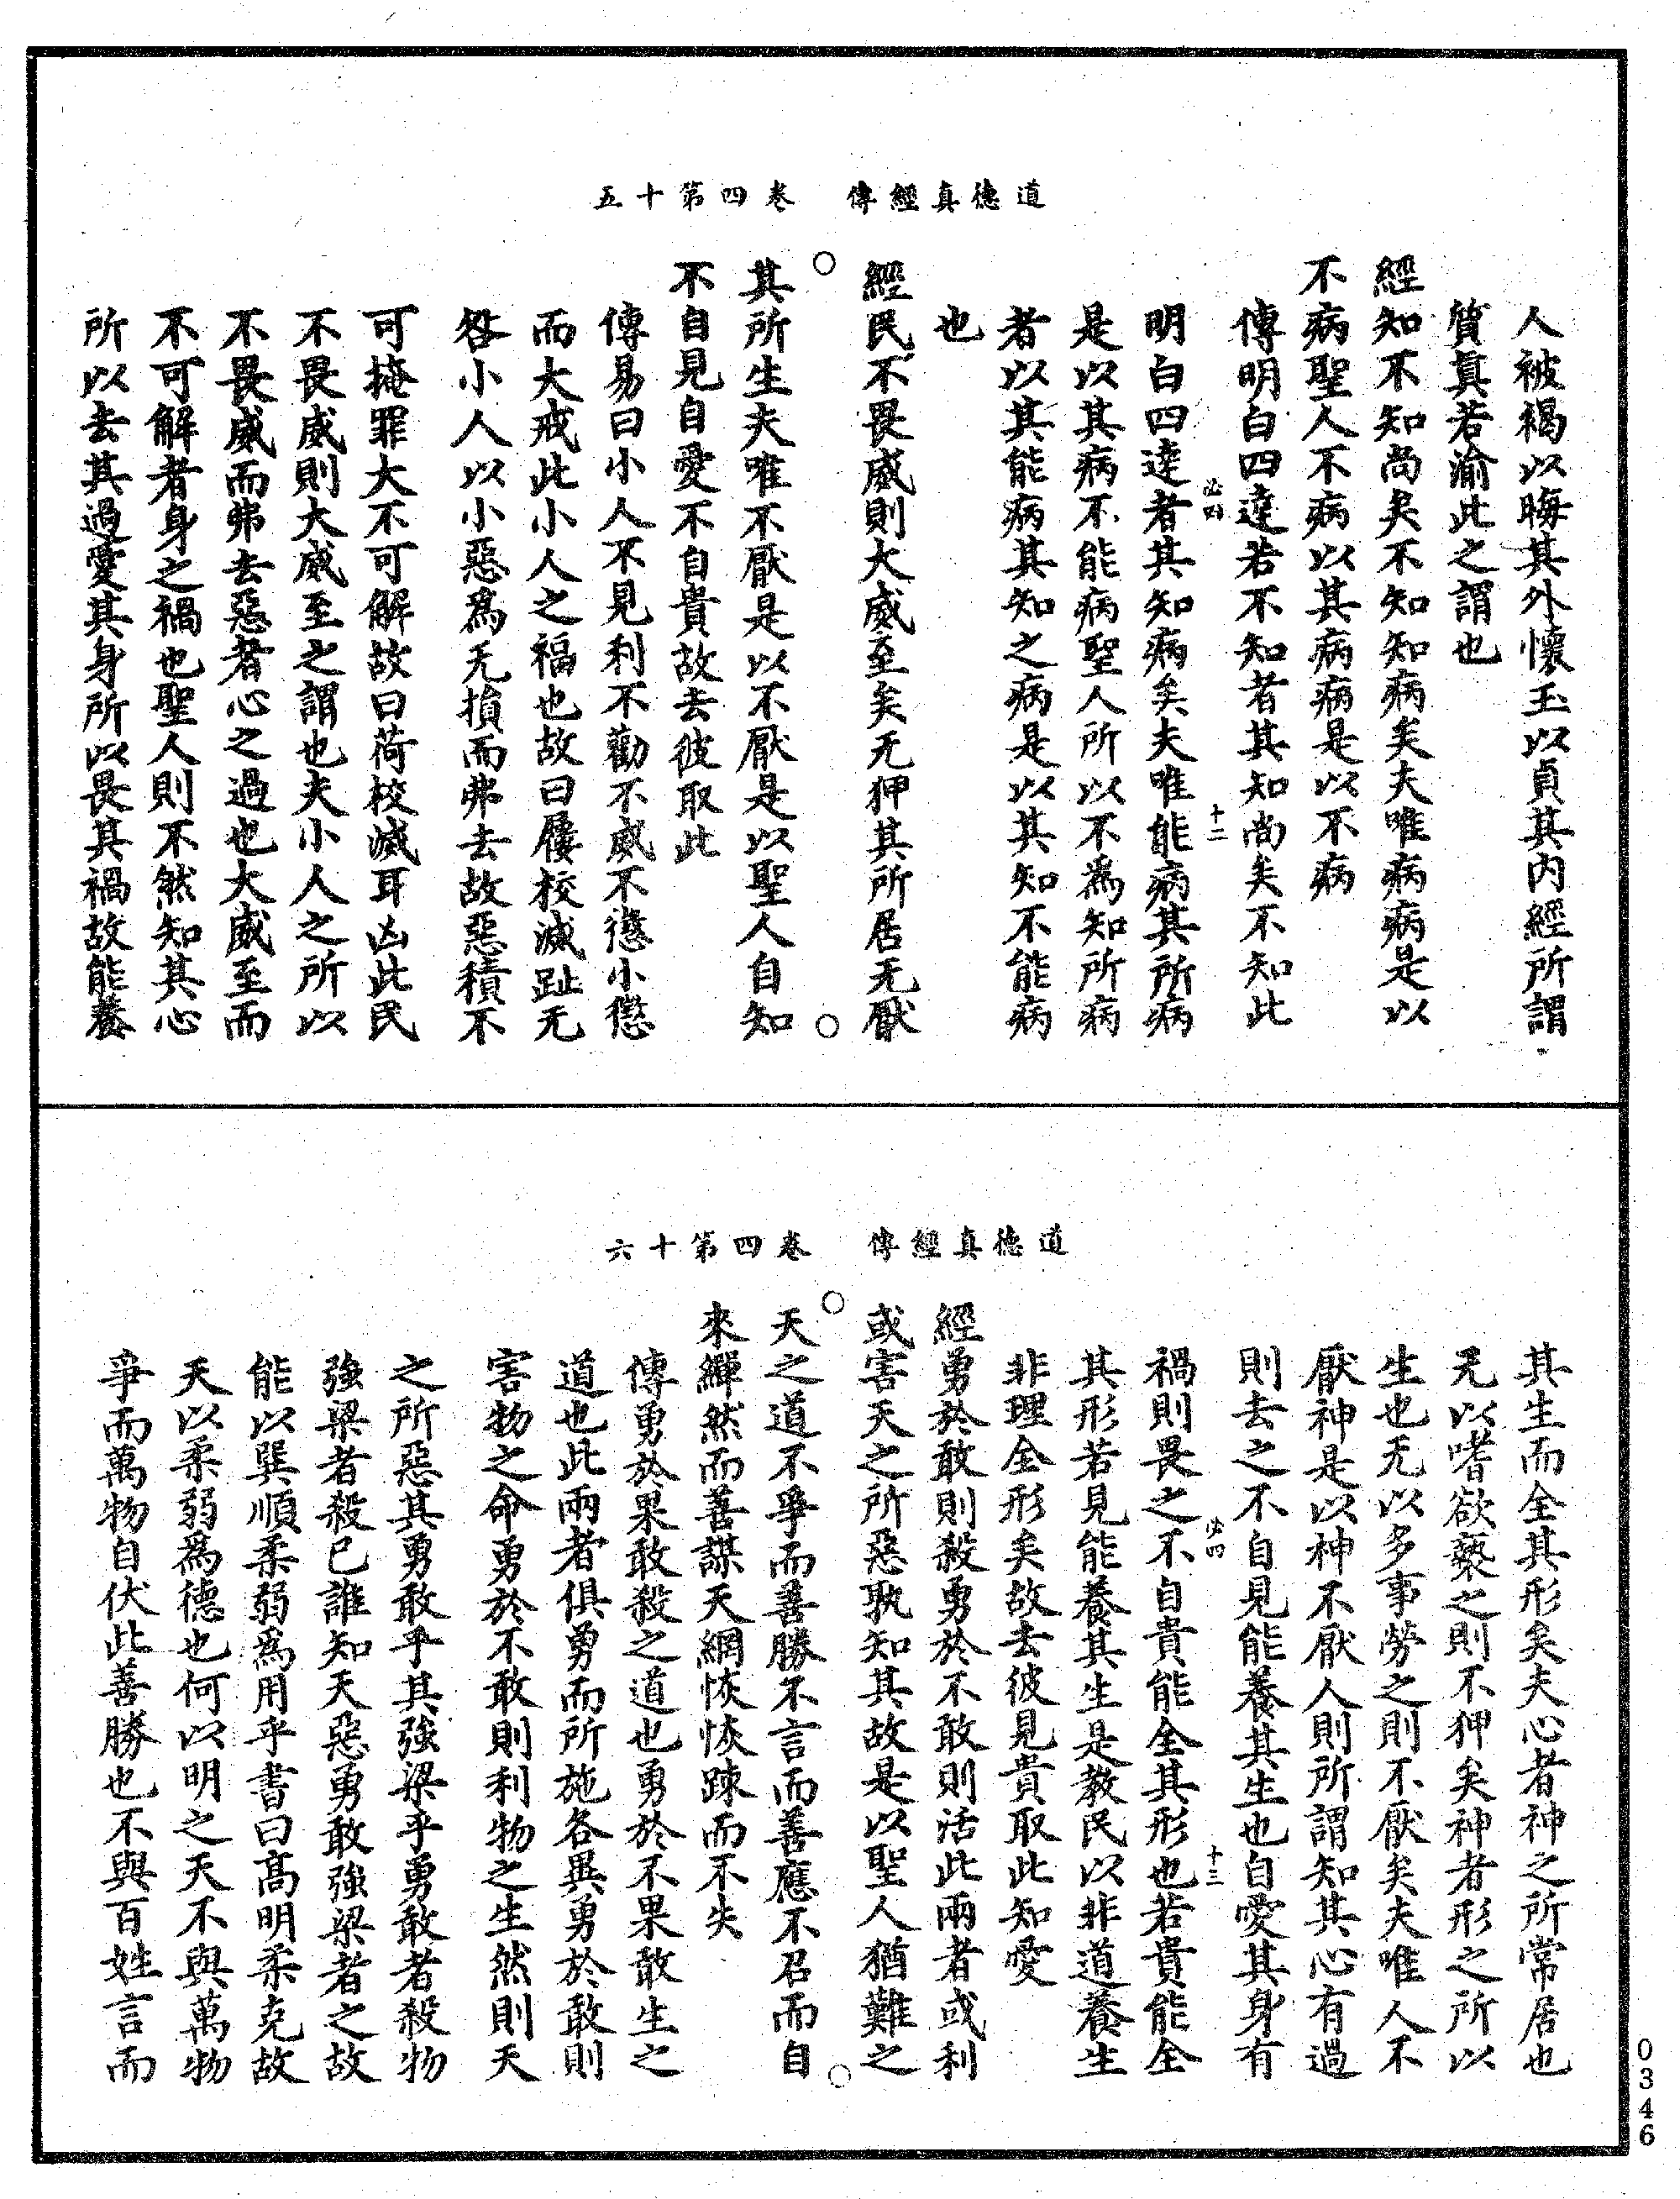 道德真經傳　卷四第十五
人被褐以晦其外懷玉以貞其內經所謂
質真若渝此之謂也
經知不知尚矣不知知病矣夫唯病病是以
不病聖人不病以其病病是以不病
傳明白四達若不知者其知尚矣不知此
必四　十二
明白四達者其知病矣夫唯能病其所病
是以其病不能病聖人所以不為知所病
者以其能病其知之病是以其知不能病
也
經民不畏威則大威至矣无狎其所居无厭
其所生夫唯不厭是以不厭是以聖人自知
不自見自愛不自貴故去彼取此
傳易曰小人不見利不勸不威不懲小懲
而大戒此小人之福也故曰屨校滅趾无
咎小人以小惡為无損而弗去故惡積不
可掩罪大不可解故曰荷校滅耳凶此民
不畏威則大威至之謂也夫小人之所以
不畏威而弗去惡者心之過也大威至而
不可解者身之禍也聖人則不然知其心
所以去其過愛其身所以畏其禍故能養
道德真經傳　卷四第十六
其生而全其形矣夫心者神之所常居也
无以嗜欲褻之則不狎矣神者形之所以
生也无以多事勞之則不厭矣夫唯人不
厭神是以神不厭人則所謂知其心有過
則去之不自見能養其生也自愛其身有
必四　十三
禍則畏之不自貴能全其形也若貴能全
其形若見能養其生是教民以非道養生
非理全形矣故去彼見貴取此知愛
經勇於敢則殺勇於不敢則活此兩者或利
或害天之所惡孰知其故是以聖人猶難之
天之道不爭而善勝不言而善應不召而自
來繟然而善謀天網恢恢踈而不失
傳勇於果敢殺之道也勇於不果敢生之
道也此兩者俱勇而所施各異勇於敢則
害物之命勇於不敢則利物之生然則天
之所惡其勇敢乎其強梁乎勇敢者殺物
強梁者殺已誰知天惡勇敢強梁者之故
能以巽順柔弱為用乎書曰高明柔克故
天以柔弱為德也何以明之天不與萬物
爭而萬物自伏此善勝也不與百姓言而
0346